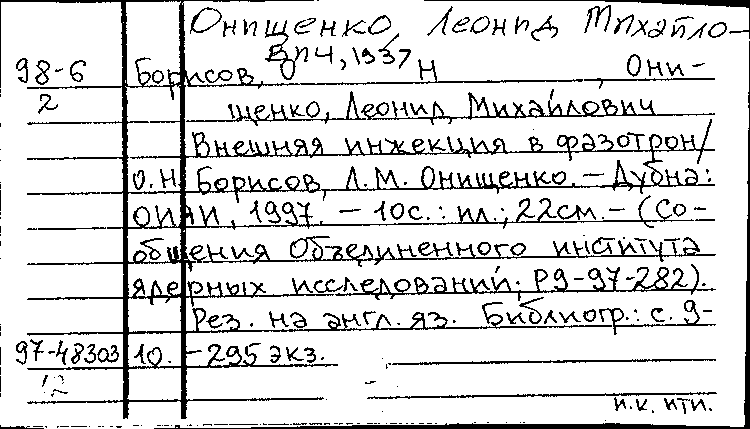 Онищенко, Леонид Михайло-
вич, 1937
98-6 Борисов, О Н , Они-
2 щенко, Леонид, Михайлович
Внешняя инжекция в фазотрон/
О.Н. Борисов, Л.М. Онищенко. – Дубна:
ОИЯИ, 1997. – 10с.: ил.; 22см. – (Со-
общения Объединенного института
ядерных исследований; Р9-97-282).
Рез. на англ. яз. Библиогр.: с. 9-
97-48303 10. – 295 экз.
12